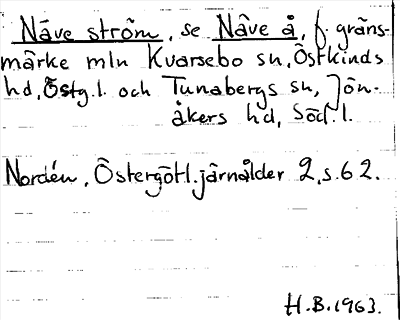 Näve ström, se Näve å, f. gräns-
märke mln Kvarsebo sn, Östkinds
hd, Östg.l. och Tunabergs sn, Jön-
åkers hd, Söd.l.
Nordén, Östergötl. järnålder 2, s. 62.
H.B. 1963.